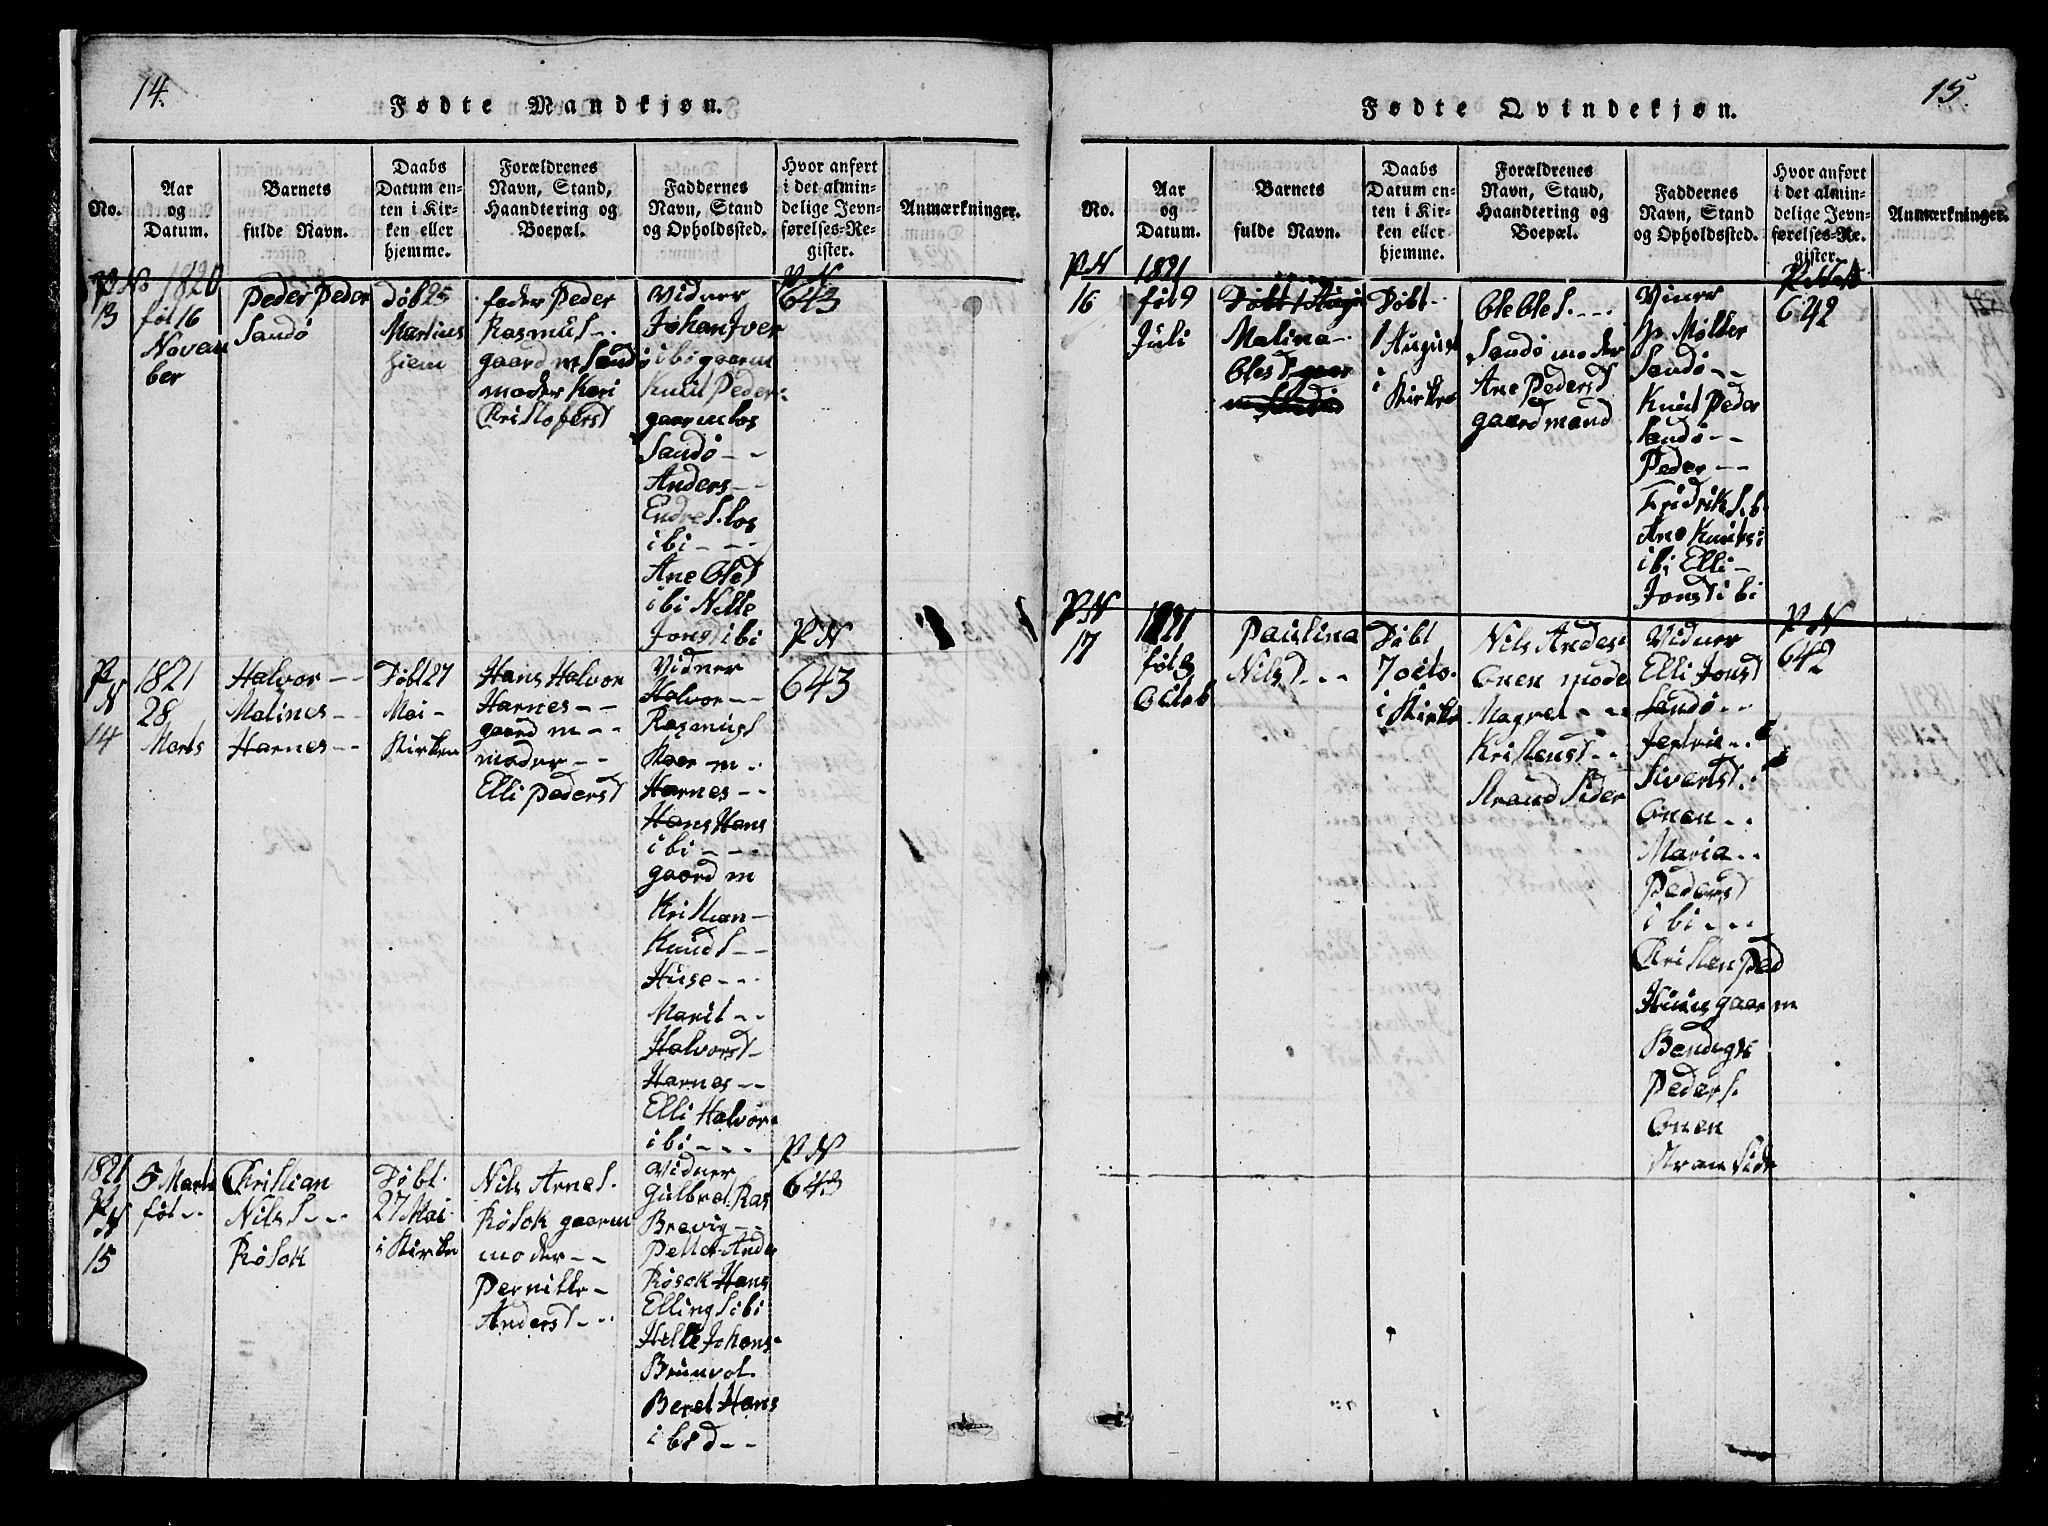 14.
Fødte Mandkjøn.
No.
Aar
og
Datum.
Barnets
fulde Navn.
Daabs
Datum en-
ten i Kir-
ken eller
hjemme.
Forældrenes
Navn, Stand,
Haandtering og
Boepæl.
Faddernes
Navn, Stand
og Opholdssted.
Hvor anført
i det almin-
delige Jevn-
førelses-Re-
gister.
Anmærkninger.
P No
13
1820
føt 16
Novem
ber
Peder Peder
Sandö
Döbt 25
Martius
hiem
fader Peder
Rasmus
gaard m Sandö
moder Kari
Kristofersd
Vidner
Johan Iver
ibi gaarm
Knut Peder
gaarm los
Sandö - -
Anders - -
Endre S. los
ibi - - -
Ane Olesd
ibi Nille
Jons ibi
P N
643
P
N
14
1821
28
Marts
Halvor - -
Malines - -
Harnes - -
Döbt 27
Mai -
Kirken
Hans Halvor
Harnes - -
gaard m - -
moder - -
Elli Pedersd
Vidner
Halvor - -
Rasmus
Kaar m -
Harnes - -
Hans Hans
ibi - - -
gaard m
Kristian -
Knud S - -
Huse - - -
Marit - -
Halvorsd -
Harnes - -
Elli Halvor
ibi - - - -
P N
643
1821
P
N
15
5 Marts
føt - -
Kristian
Nils S - - -
Rösok
Döbt.
27 Mai
i Kirken
Nils Arnes.
Rösok gaarm
moder - -
Pernille -
Andersd - -
Vidner
Gulbrat Ras
Brevig - -
Petter Ander
Rösok Hans
Elling S ibi
Hille Johans-
Brunvol.
Beret Hans
ibi d - -
P N
643
15.
Fødte Qvindekjøn.
No.
Aar
og
Datum.
Barnets
fulde Navn.
Daabs
Datum en-
ten i Kir-
ken eller
hjemme.
Forældrenes
Navn, Stand,
Haandtering og
Boepæl.
Faddernes
Navn, Stand
og Opholdssted.
Hvor anført
i det almin-
delige Jevn-
førelses-Re-
gister.
Anmærkninger.
P N
16
1821
føt 9
Juli
Malina -
Olesd
Döbt - -
1 August
i Kirke
Ole Ole S. - - -
Sandö moder
Ane Pedersd
gaardmand
Möller
Sandö - -
Knut Peder
Sandö - -
Peder - -
Fridrik S. ib
Ane Knuts i
ibi Elli -
Jonsd ibi
642
P N
17
1821
føt 3
Octob
Paulina
Nilsd - - -
Döbt
7 octo.
i Kirke
Nils Anders
Onen mode
Magret - - -
Kristensd - -
Strand Sider
Vidner
Elli Jonsd
Sandö - -
Sivertsd.
Onen - -
Maria - -
Pedersd
ibi - - -
Kristen Ped
gaar m
Bendigts
Peder S.
Onen
Stran Side
P N
642